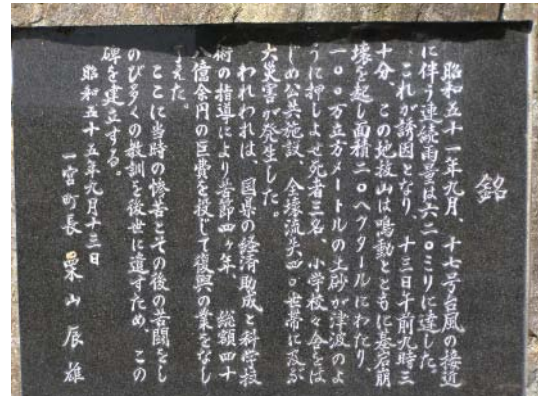 銘
昭和五十一年九月、十七号台風の接近
に伴う連続雨量は六二〇ミリに達した。
これが誘因となり、十三日午前九時三
十分、この地抜山は鳴動とともに基岩崩
壊を起し面積二〇ヘクタールにわたり、
一〇〇万立方メートルの土砂が津波のよ
うに押しよせ死者三名、小学校々舎をは
じめ公共施設、全壊流失四〇世帯に及ぶ
大災害が発生した。
われわれは、国県の経済助成と科学技
術の指導により苦節四ヶ年、総額四十
八億余円の巨費を投じて復興の業をなし
了えた。
ここに当時の惨苦とその後の苦闘をし
のび多くの教訓を後世に遺すため、この
碑を建立する。
昭和五十五年九月十三日
一宮町長 栗山辰雄